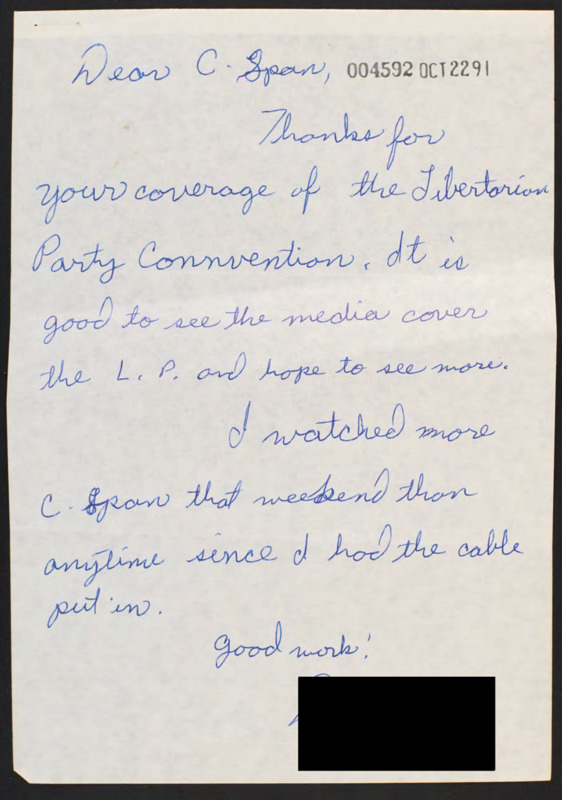 Dear C. Span, 004592 OCT2291
Thanks for
your coverage of the Libertarian
Party Connvention. It is
good to see the media cover
the L. P. and hope to see more.
I watched more
C. Span that weekend than
anytime since I had the cable
put in.
Good work!